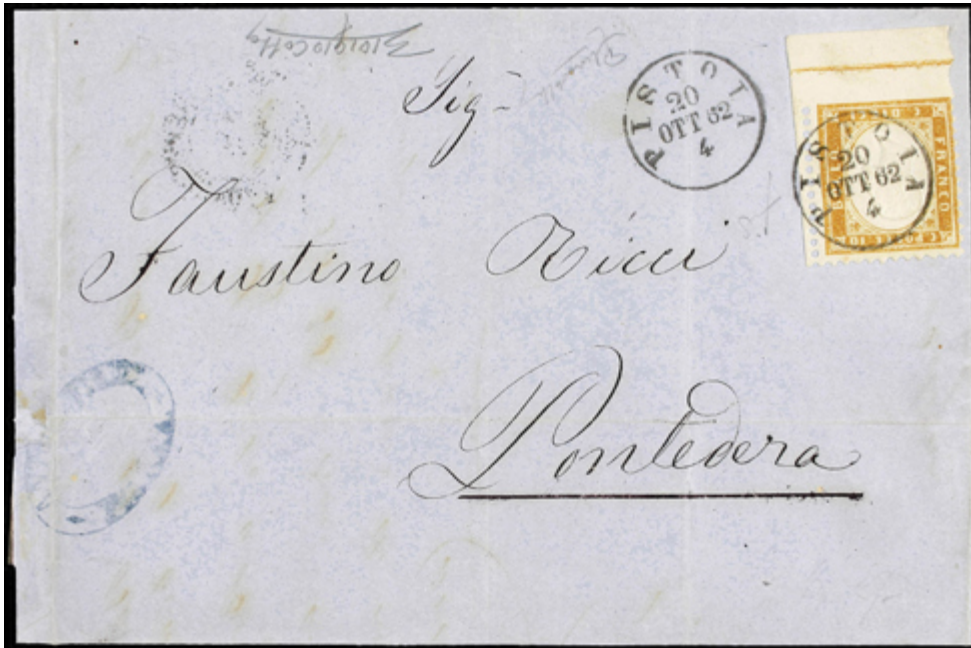 Sig
PISTOIA
20
OTT 62
4
PISTOIA
20
OTT 62
4
FRANCO
Faustino Ricci
Pontedera